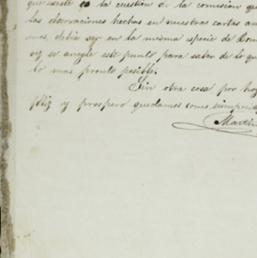 que existe en la cuestion de la comision que
las observaciones hechas en nuestras cartas an
debia ser en la misma especie de
se arregle este punto para saber de lo que
lo mas pronto posible.
Sin otra cosa por hoy
feliz y prospero quedamos como siempre
Martin